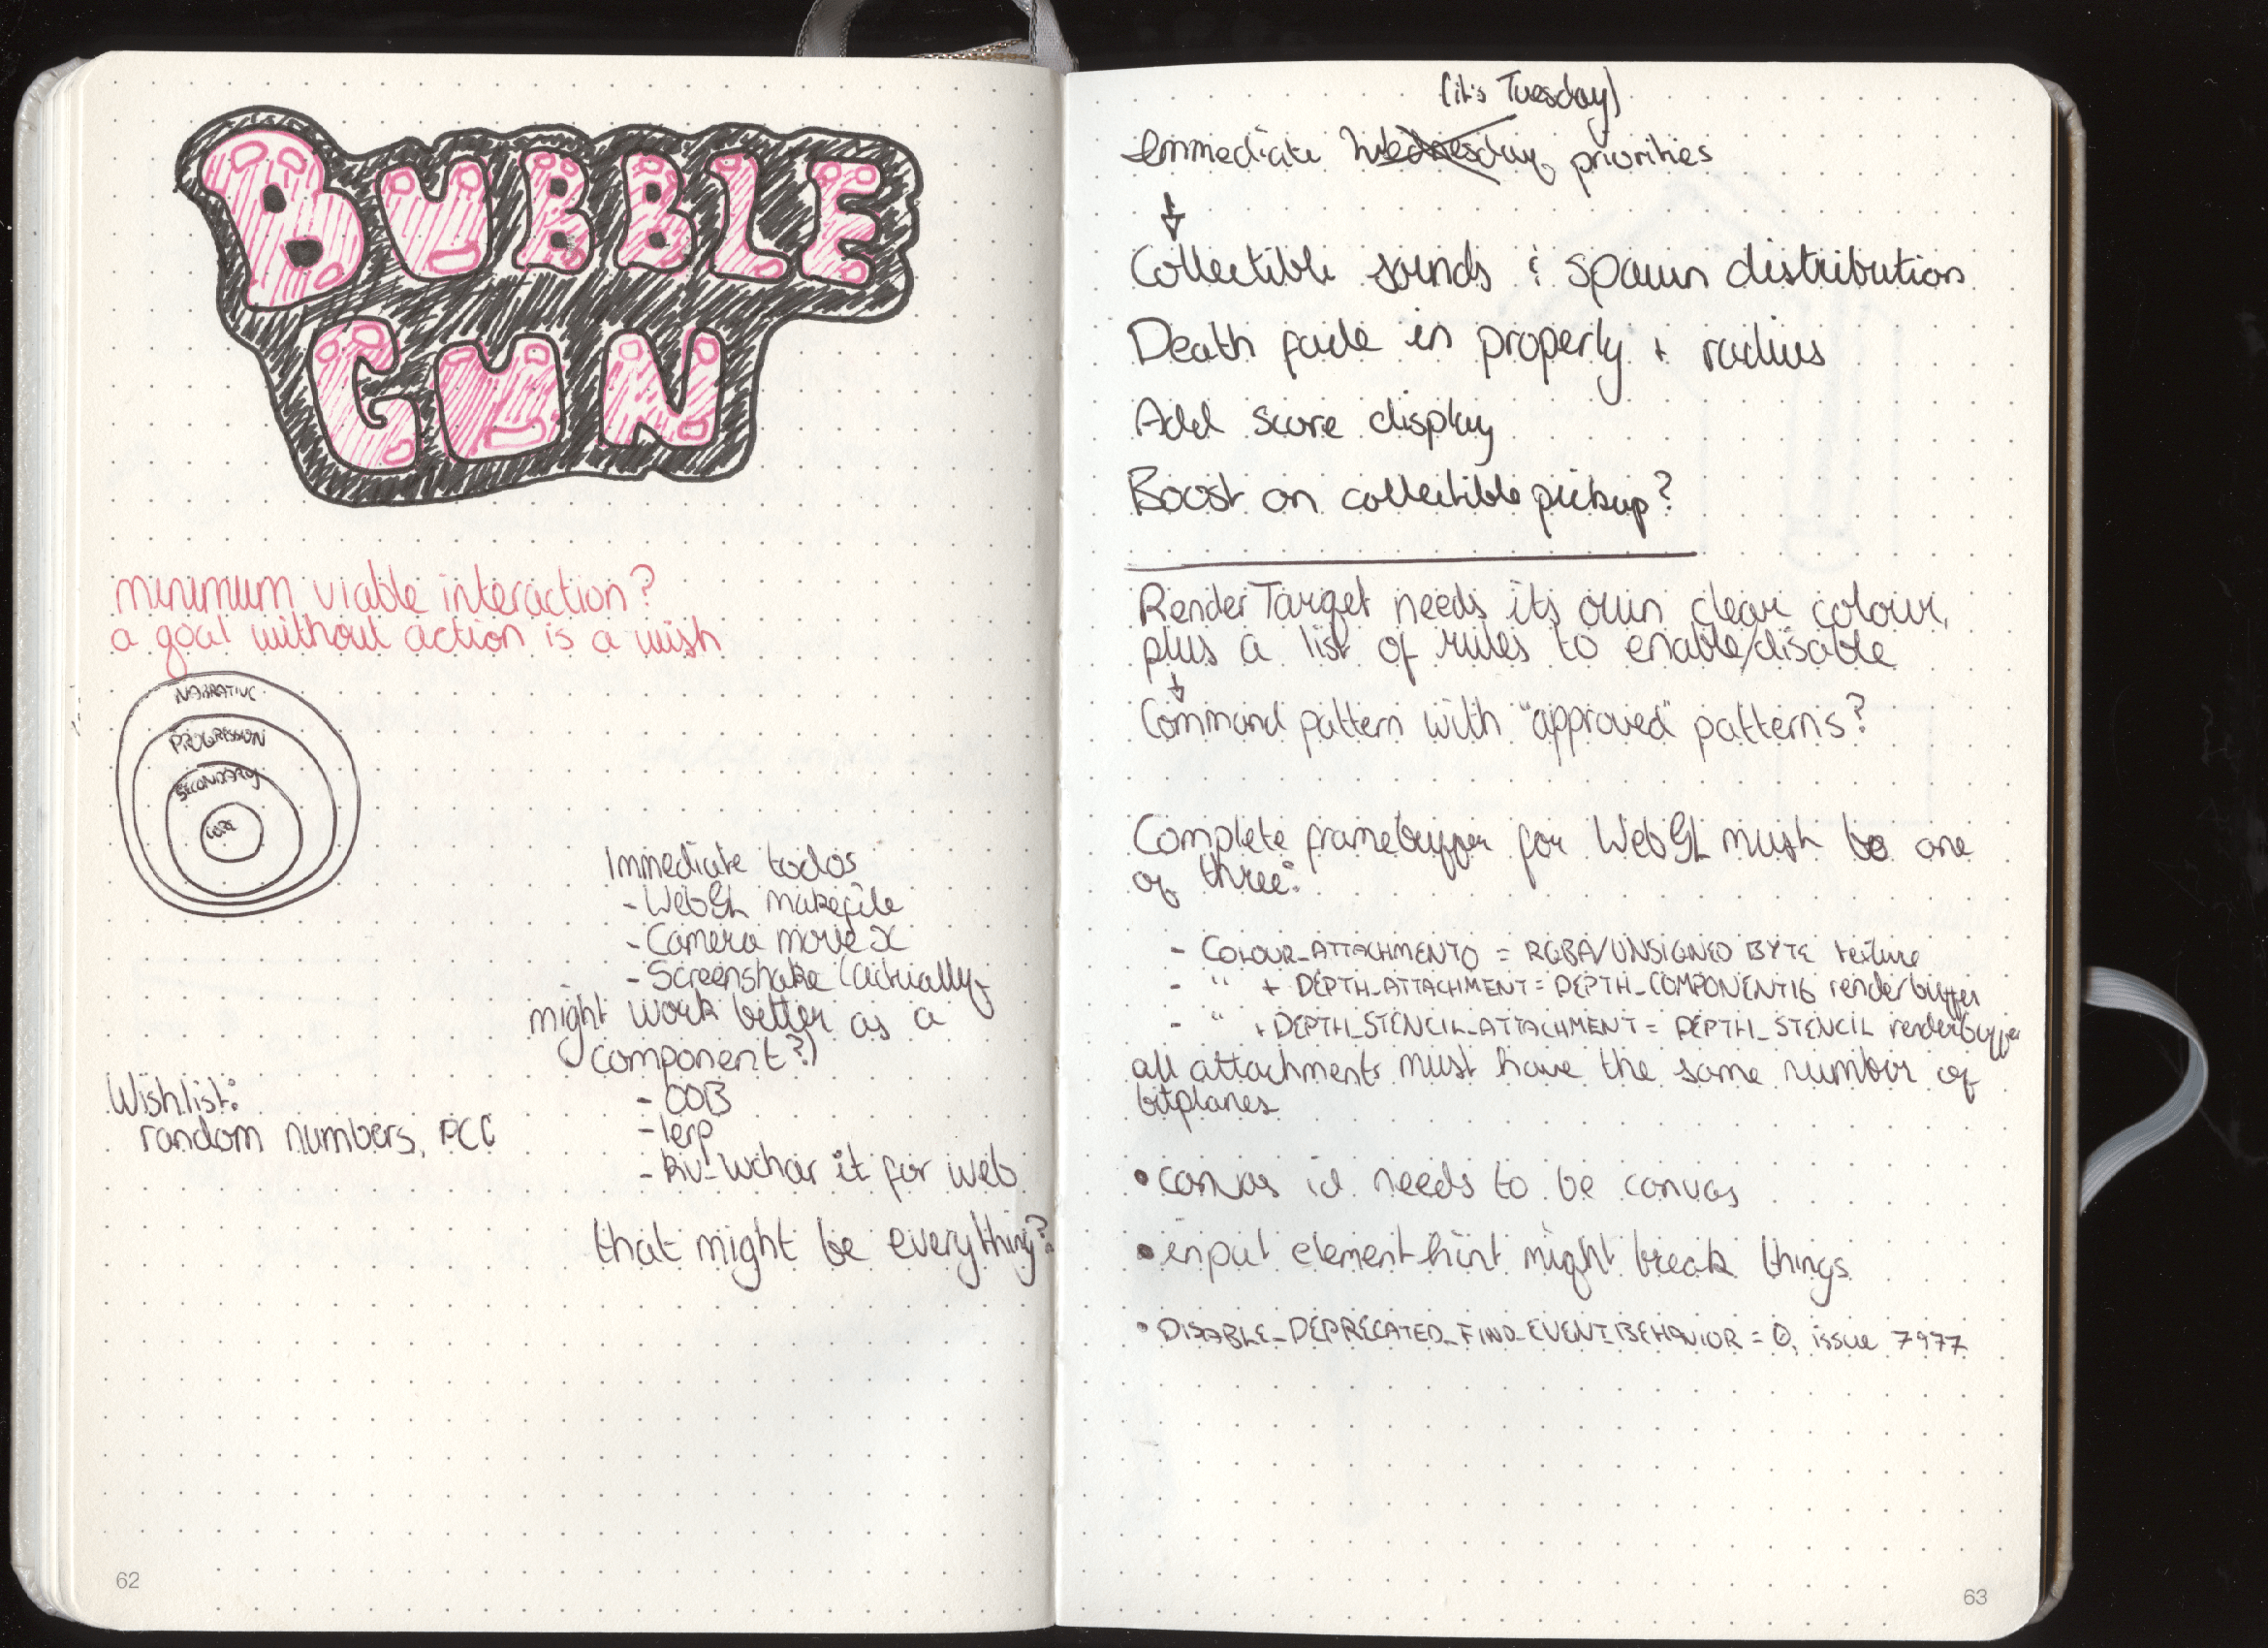 BUBBLE
GUN
minimum viable interaction?
a goal without action is a wish
NARRATIVE
PROGRESSION
SECONDARY
CORE
Immediate todos
- WebGL makefile
- Camera move x
- Screenshake (actually
might work better as a
component?)
- OOB
- lerp
- wchar it for web
that might be everything?
Wishlist:
random numbers, PCG
62
(it's Tuesday)
Immediate Wednesday priorities
Collectible sounds & spawn distribution
Death fade in properly + radius
Add score display
Boost on collectible pickup?
RenderTarget needs its own clear colour,
plus a list of rules to enable/disable
Command pattern with "approved" patterns?
Complete framebuffer for WebGL must be one
of three:
- COLOUR_ATTACHMENT0 = RGBA/UNSIGNED BYTE texture
- " + DEPTH_ATTACHMENT = DEPTH_COMPONENT16 renderbuffer
- " + DEPTH_STENCIL_ATTACHMENT = DEPTH_STENCIL renderbuffer
all attachments must have the same number of
bitplanes
• canvas id needs to be canvas
• input element hint might break things
• DISABLE_DEPRECATED_FIND_EVENT_BEHAVIOR = 0, issue 7977
63